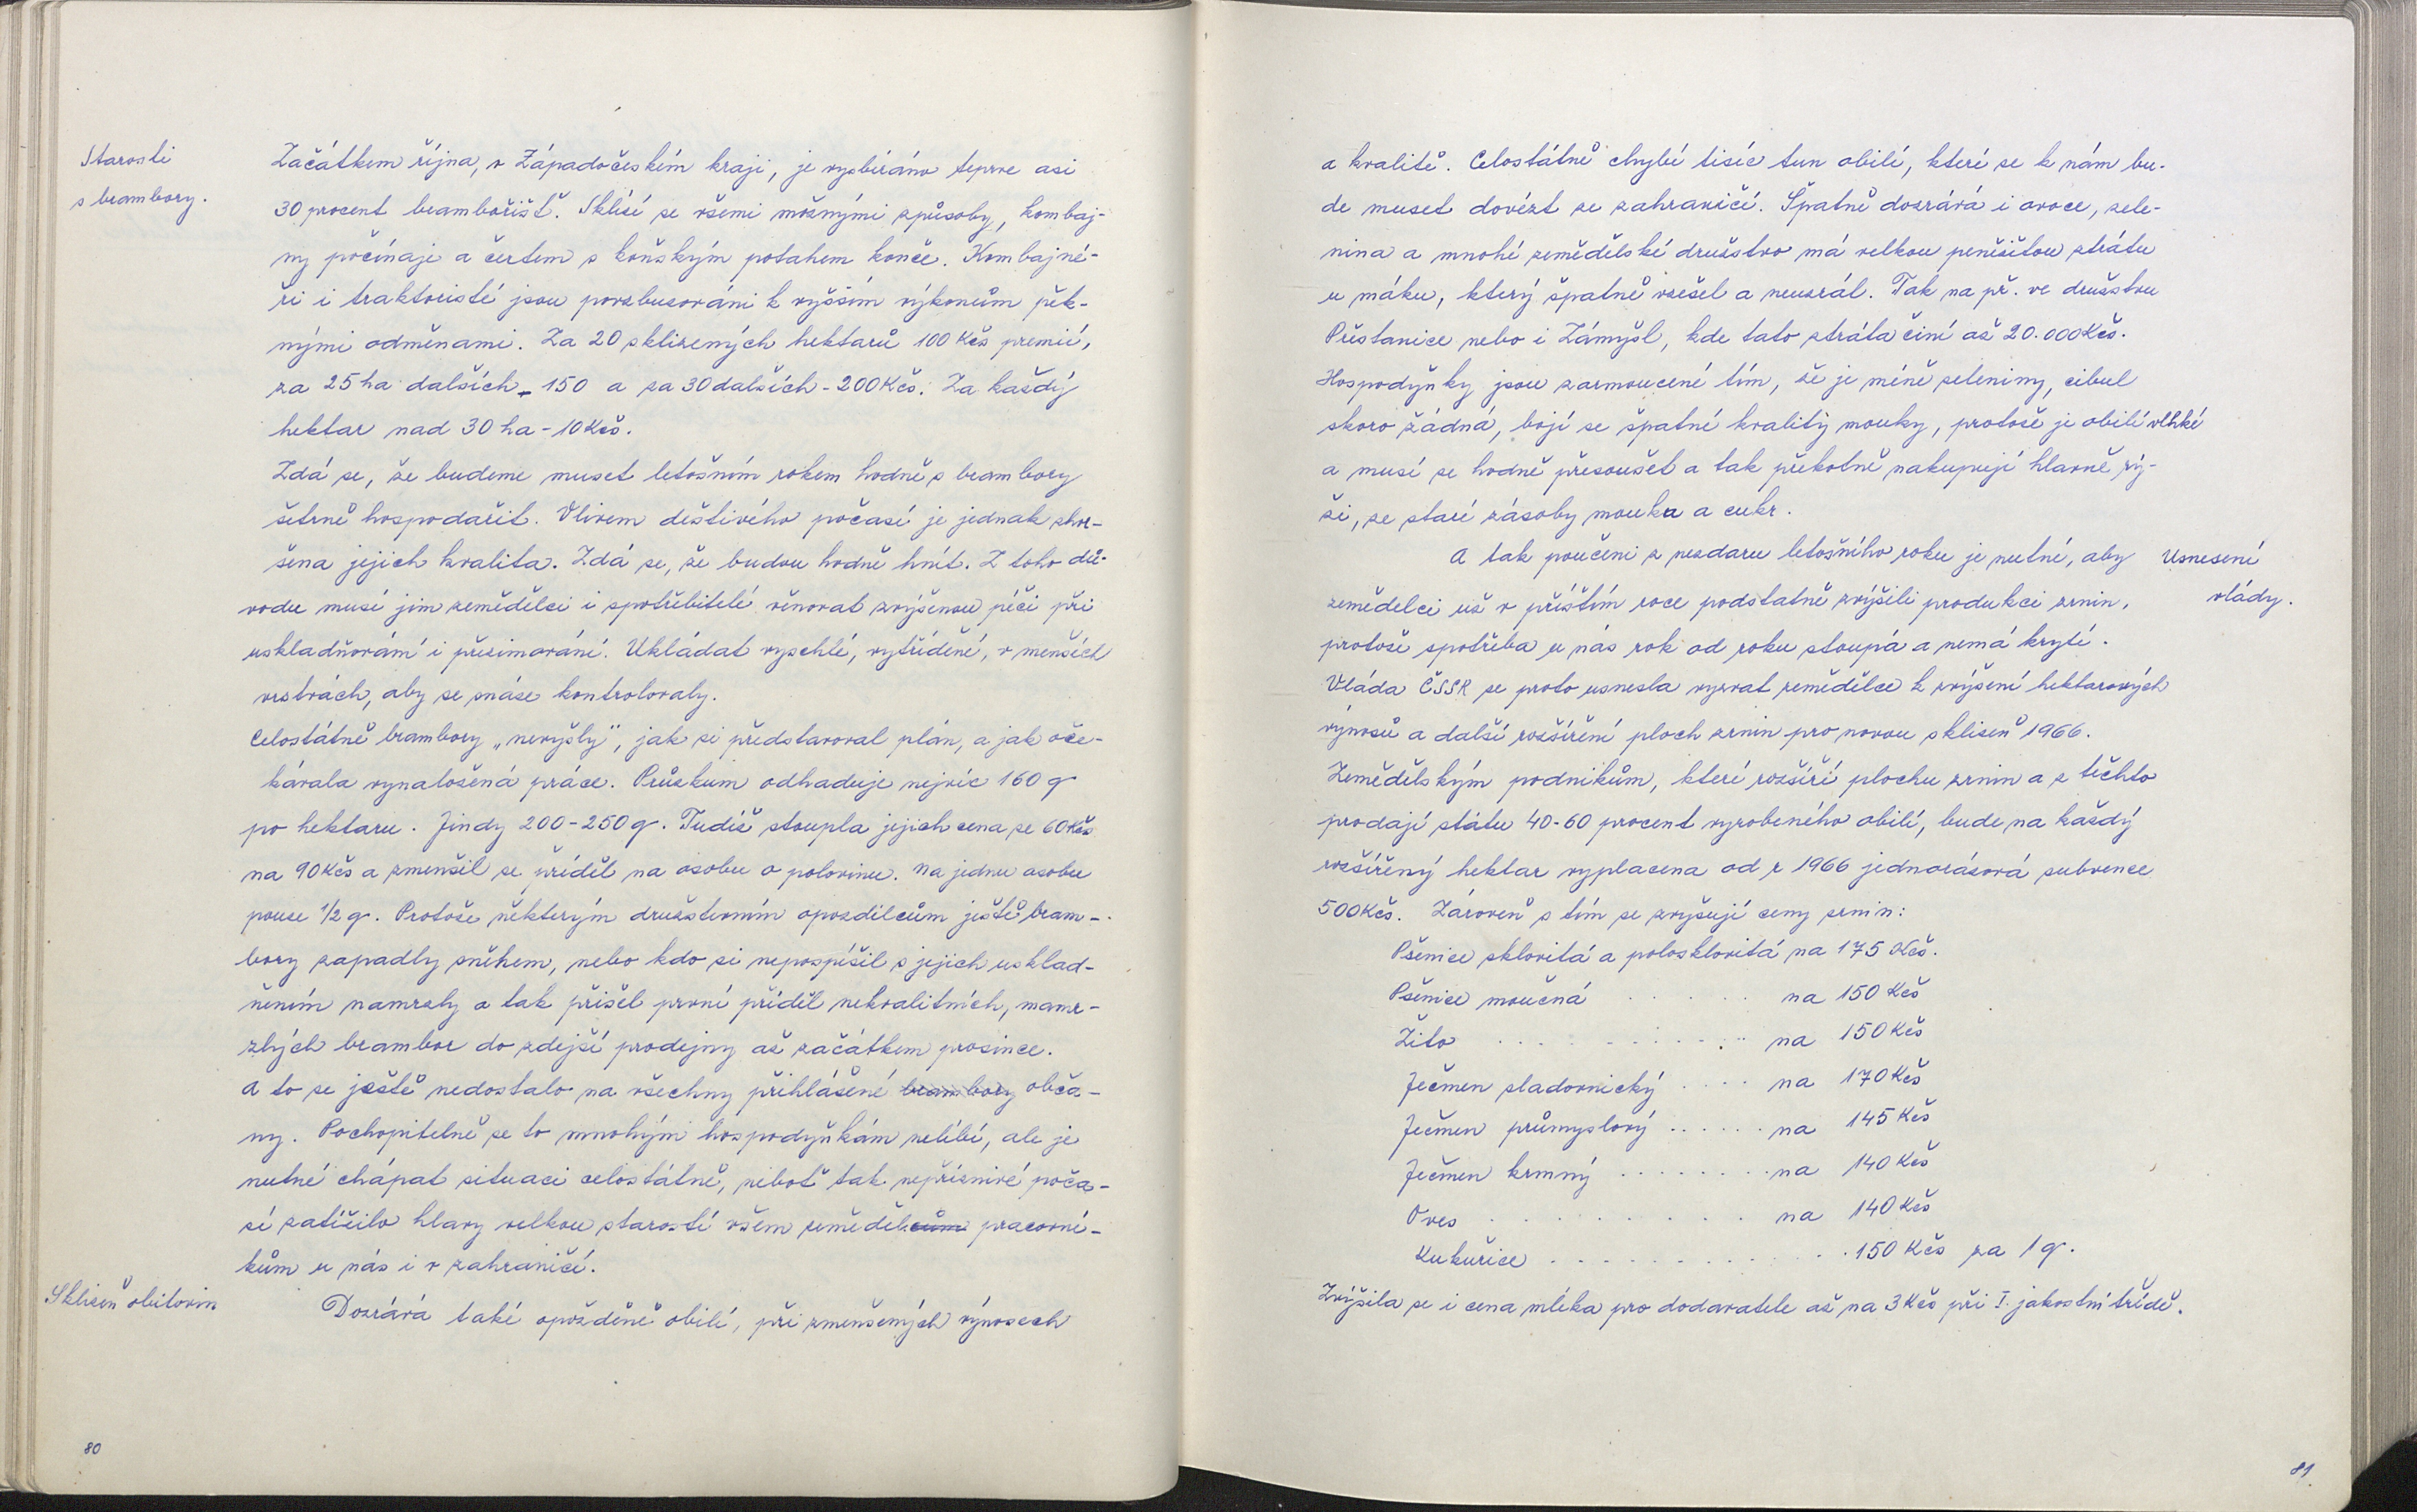 Starosti
s brambory.
Začátkem října, v Západočeském kraji, je vysbíráno teprve asi
30 procent bramborišť. Sklízí se všemi možnými způsoby, kombaj-
ny počínaje a čertem s koňským potahem konče. Kombajné-
ři i traktoristé jsou povzbuzováni k vyšším výkonům pěk-
nými odměnami. Za 20 sklizených hektarů 100 Kčs premií,
za 25 ha dalších - 150 a za 30 dalších - 200 Kčs. Za každý
hektar nad 30 ha - 10 Kčs.
Zdá se, že budeme muset letošním rokem hodně s brambory
šetrně hospodařit. Vlivem deštivého počasí je jednak zhor-
šena jejich kvalita. Zdá se, že budou hodně hnít. Z toho dů-
vodu musí jim zemědělci i spotřebitelé věnovat zvýšenou péči při
uskladňování i přezimování. Ukládat vyschlé, vytříděné, v menších
vrstvách, aby se snáze kontrolovaly.
Celostátně brambory „nevyšly", jak si představoval plán, a jak oče-
kávala vynaložená práce. Průzkum odhaduje nejvíc 160 q
po hektaru. Jindy 200-250 q. Tudíž stoupla jejich cena ze 60 Kčs
na 90 Kčs a zmenšil se příděl na osobu o polovinu. Na jednu osobu
pouze 1/2 q. Protože některým družstevním opozdilcům ještě bram-
bory zapadly sněhem, nebo kdo si nepospíšil s jejich usklad-
něním namrzly a tak přišel první příděl nekvalitních, namr-
zlých brambor do zdejší prodejny až začátkem prosince.
A to se ještě nedostalo na všechny přihlášené brambory obča-
ny. Pochopitelně se to mnohým hospodyňkám nelíbí, ale je
nutné chápat situaci celostátně, neboť tak nepříznivé poča-
sí zatížilo hlavy velkou starostí všem zemědělcům pracovní-
kům u nás i v zahraničí.
Sklizeň obilovin
Dozrává také opožděně obilí, při zmenšených výnosech
80
a kvalitě. Celostátně chybí tisíc tun obilí, které se k nám bu-
de muset dovézt ze zahraničí. Špatně dozrává i ovoce, zele-
nina a mnohé zemědělské družstvo má velkou peněžitou ztrátu
u máku, který špatně vzešel a neuzrál. Tak na př. ve družstvu
Přestanice nebo i Zámyšl, kde tato ztráta činí až 20.000 Kčs.
Hospodyňky jsou zarmoucené tím, že je méně zeleniny, cibul
skoro žádná, bojí se špatné kvality mouky, protože je obilí vlhké
a musí se hodně přesoušet a tak překotně nakupují hlavně rý-
ži, ze staré zásoby mouka a cukr.
A tak poučeni z nezdaru letošního roku je nutné, aby
Usnesení
vlády.
zemědelci už v příštím roce podstatně zvýšili produkci zrnin,
protože spotřeba u nás rok od roku stoupá a nemá krytí.
Vláda ČSSR se proto usnesla vyzvat zemědělce k zvýšení hektarových
výnosů a další rozšíření ploch zrnin pro novou sklizeň 1966.
Zemědělským podnikům, které rozšíří plochu zrnin a z těchto
prodají státu 40-60 procent vyrobeného obilí, bude na každý
rozšířený hektar vyplacena od r 1966 jednorázová subvence
500 Kčs. Zároveň s tím se zvyšují ceny zrnin:
Pšenice sklovitá a polosklovitá na 175 Kčs.
Pšenice moučná . . . . . na 150 Kčs
Žito . . . . . . . . . . . na 150 Kčs
Ječmen sladovnický . . . . na 170 Kčs
Ječmen průmyslový . . . . . . na 145 Kčs
Ječmen krmný . . . . . . . . na 140 Kčs
Oves . . . . . . . . . na 140 Kčs
Kukuřice . . . . . . . . . . . . 150 Kčs za 1 q.
Zvýšila se i cena mléka pro dodavatele až na 3 Kčs při I. jakostní třídě.
81.